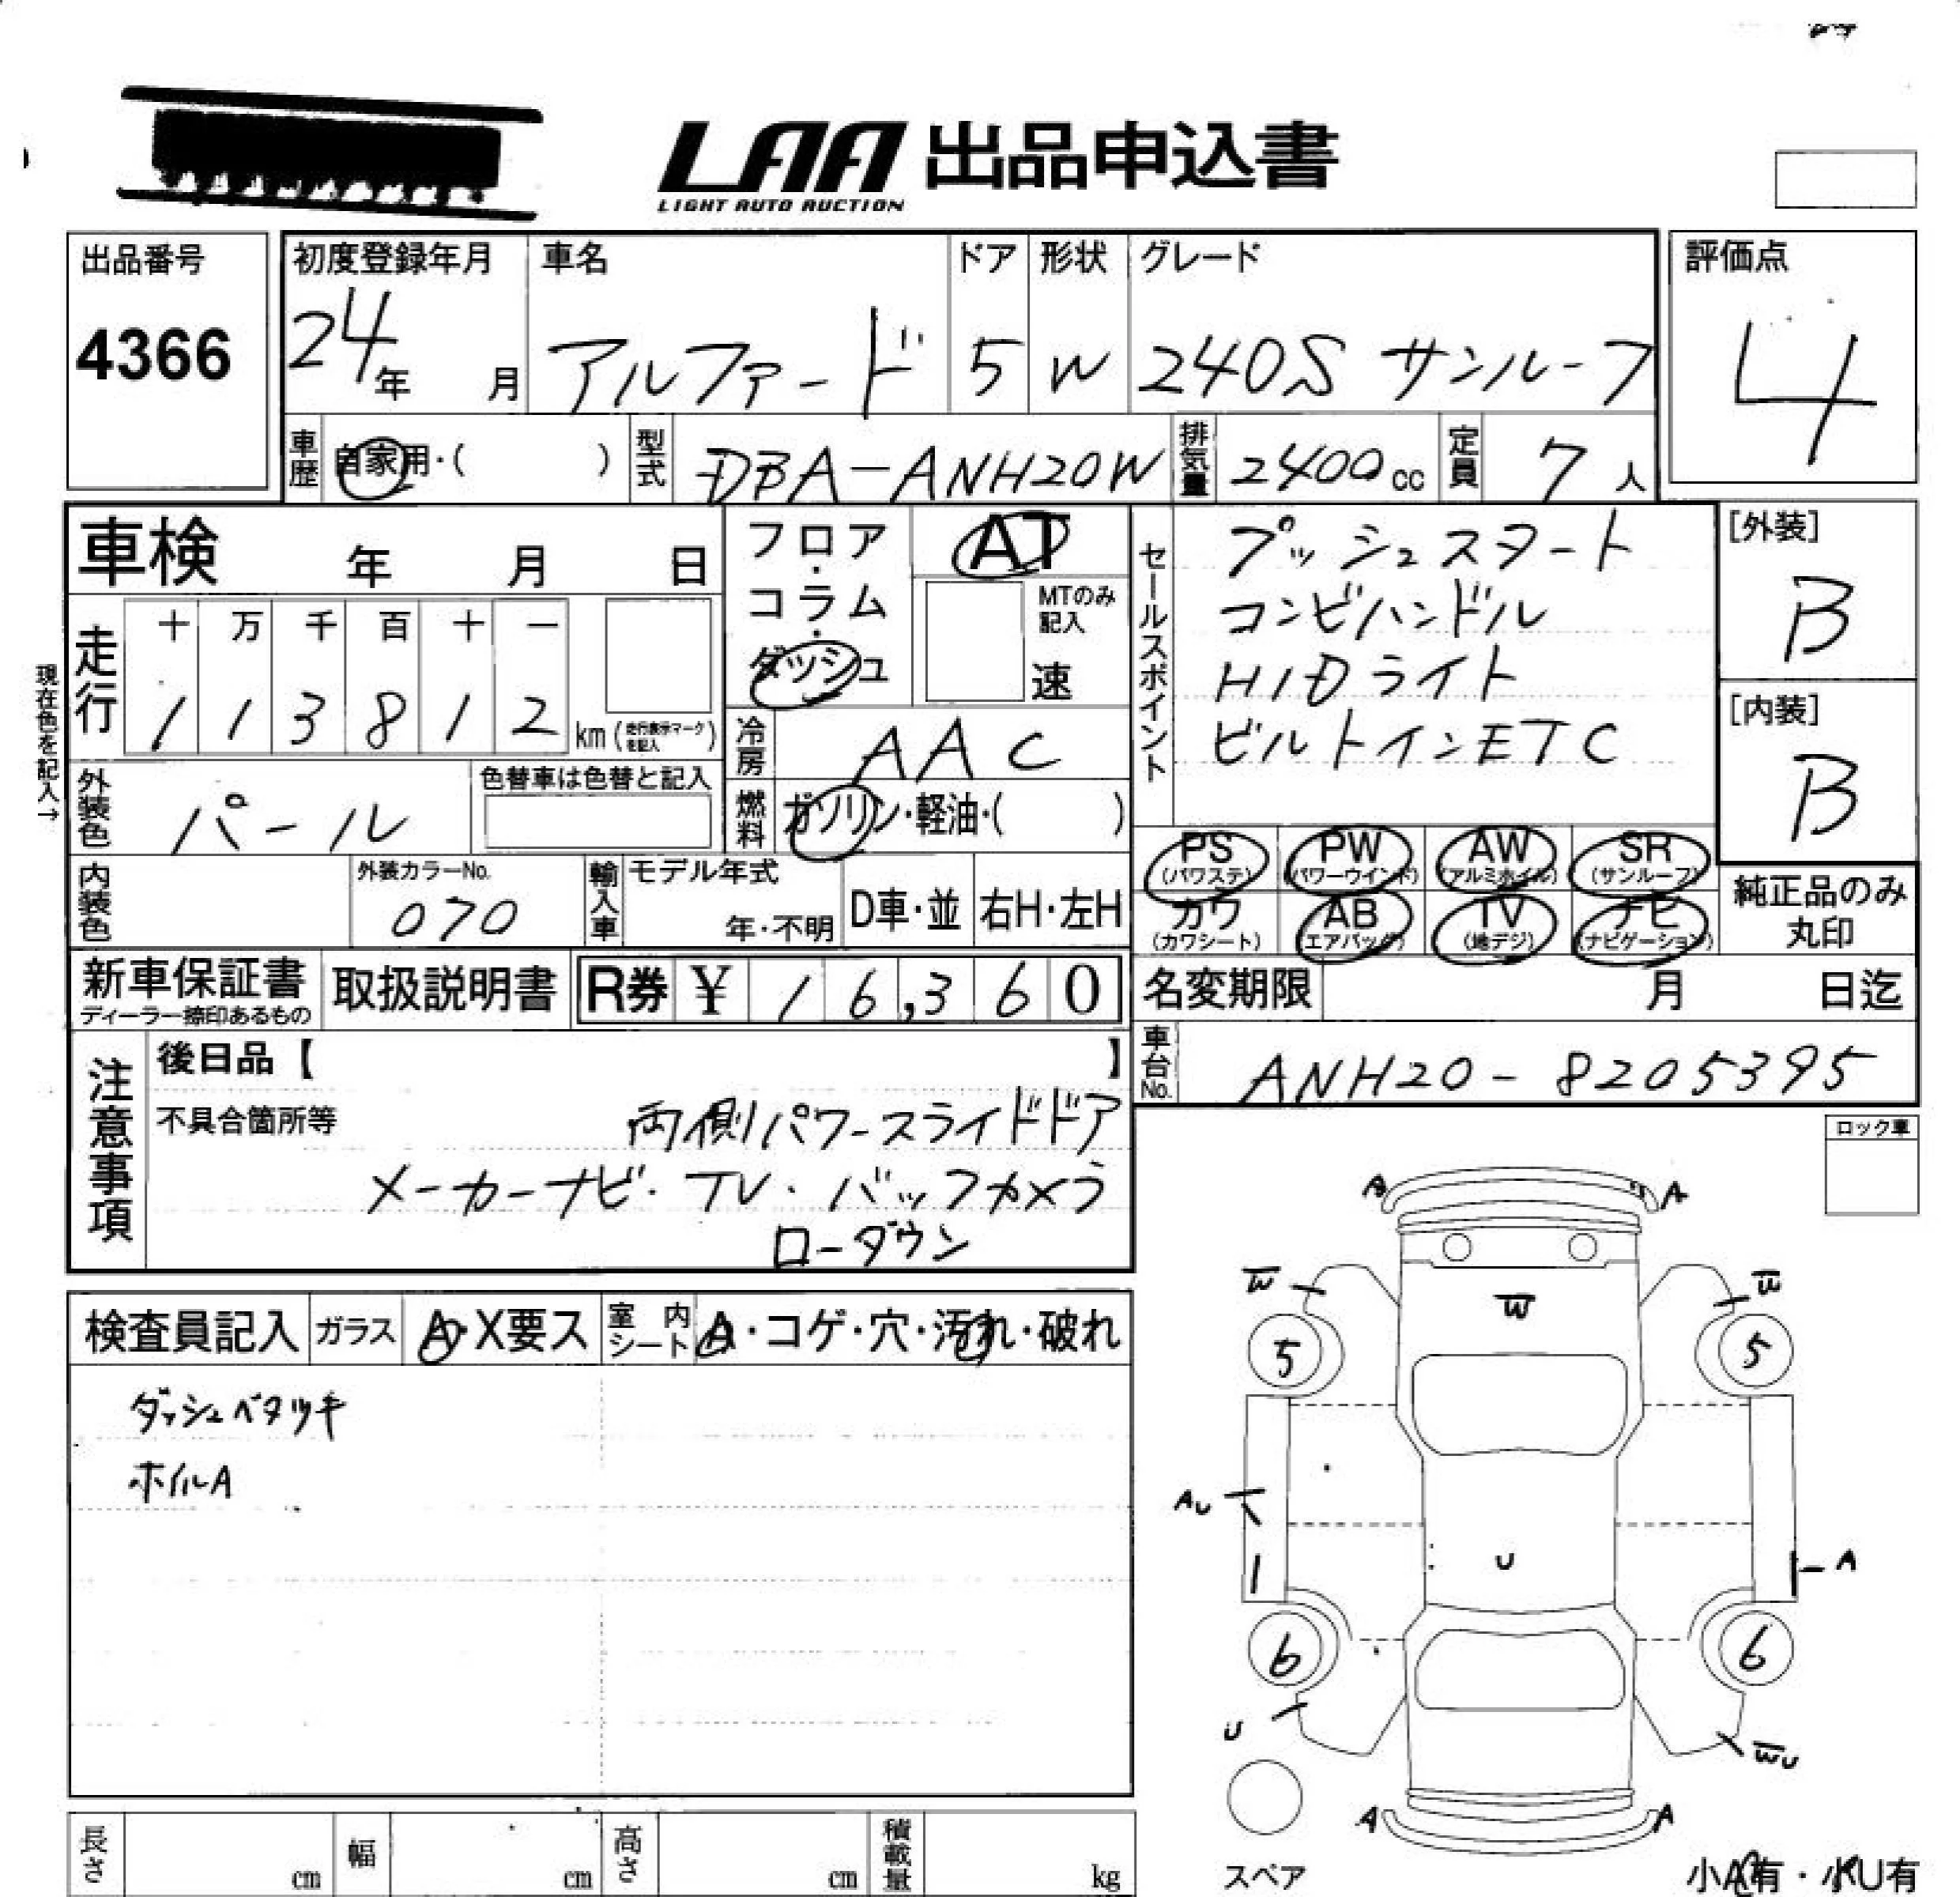 LAA 出品申込書
LIGHT AUTO AUCTION
出品番号
4366
初度登録年月
24年 月
車名
アルファード
ドア
5
形状
W
グレード
240S サンルーフ
評価点
4
車歴 自家用・( )
型式 DBA-ANH20W
排気量 2400cc
定員 7人
車検 年 月 日
フロア・コラム・ダッシュ
AT
MTのみ記入
速
セールスポイント
プッシュスタート
コンビハンドル
HIDライト
ビルトインETC
[外装]
B
[内装]
B
現在色を記入→
走行
十 万 千 百 十 一
1 1 3 8 1 2 km (走行表示マークを記入)
冷房 AAC
外装色 パール
色替車は色替と記入
燃料 ガソリン・軽油・( )
PS (パワステ) PW (パワーウインド) AW (アルミホイル) SR (サンルーフ)
カワ (カワシート) AB (エアバッグ) TV (地デジ) ナビ (ナビゲーション)
純正品のみ
丸印
内装色
外装カラーNo.
070
輸入車
モデル年式
年・不明
D車・並
右H・左H
新車保証書
ディーラー捺印あるもの
取扱説明書
R券 ¥ 16,360
名変期限 月 日迄
車台No. ANH20-8205395
注意事項
後日品【 】
不具合箇所等
両側パワースライドドア
メーカーナビ・TV・バックカメラ
ローダウン
ロック車
検査員記入
ガラス A・X要ス
室内シート A・コゲ・穴・汚れ・破れ
ダッシュベタツキ
ホイルA
A A
W W
W
5 5
AU
U
A
6 6
U
WU
A A
スペア
小A有・小U有
長さ cm
幅 cm
高さ cm
積載量 kg